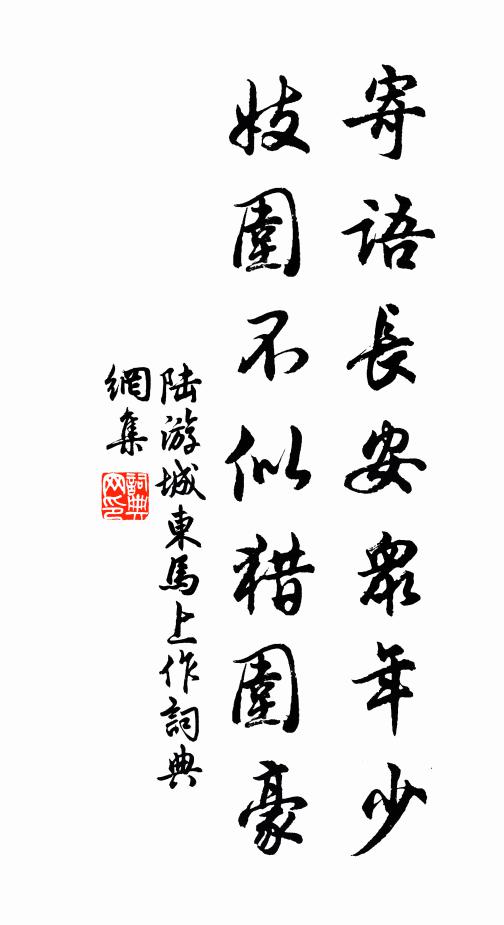 寄語長安衆年少
妓圍不似猎圍豪
陆游城東馬上作詞典
網集
詞典
网印